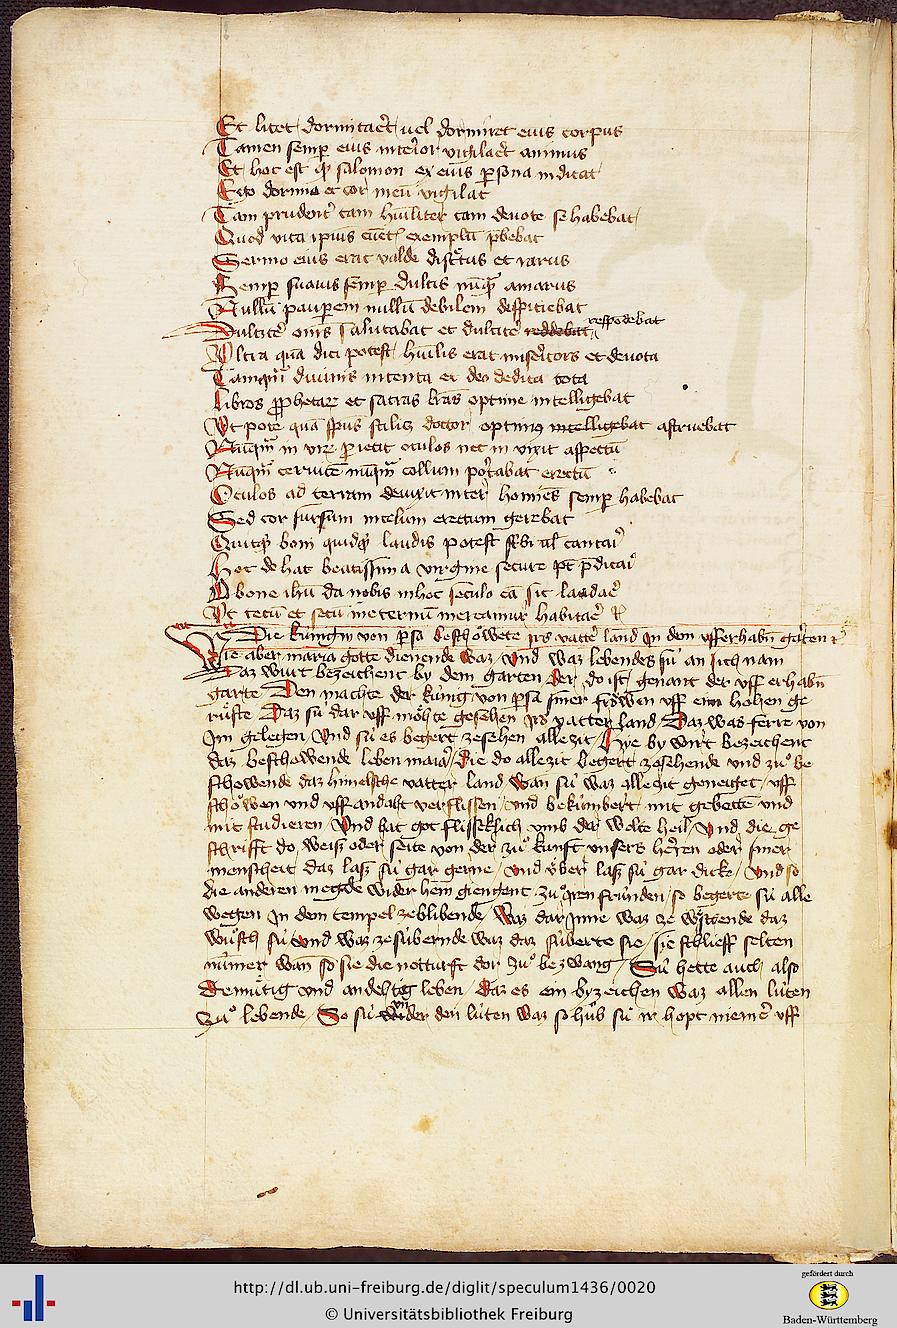 Et licet dormitaret uel dormiret eius corpus
Tamen semp eius interior vigilaret animus
Et hoc est qd salomon ex eius psona indicat
Ego dormio et cor meū vigilat
Tam prudent tam hūiliter tam deuote se habebat
Quod vita ipius exemplū pbebat
Sermo eius erat valde discretus et rarus
Semp suauis semp dulcis nūqȝ amarus
Nullū pauperem nullū debilem despiciebat
Dulcit omīs salutabat et dulcit reddebat respōdebat
Vltra quā dici potest hūilis erat misericors et deuota
Tamqm diuinis intenta et deo dedita tota
Libros pphetarȝ et sacras lras optime intelligebat
Vt pote quā spūs scūs doctor optimus intelligebat astruebat
Nūqm in virȝ piecit oculos nec in vixit aspectū
Nūqm ceruicē nūqm collum portabat erectū
Oculos ad terram devixit inter homīes semp habebat
Sed cor sursum in celum erectum gerebat
Quitqd boni quidqd laudis potest scbi ul cantari
Hec de hac beatissima virgine secure pt pdicari
O bone ihū da nobis in hoc seculo eā sic laudare
Vt tecū et secū in eternū mereamur habitare
Die kúngin von psa beschöwete irs vatters land in dem vfferhabn garten
Wie aber maria gotte dienende waz vnd waz lebendes sú an sich nam
Daz wurt bezeichent by dem garten der do ist genant der vff erhabn
garte Den machte der kúnig von psa siner frowen vff eim hohen ge
rúste Daz sú dar vff möhte gesehen irs vatter land Daz was ferre von
Im gelegen Vnd sú es begert zesehen allezit Hye by wirt bezeichent
daz beschowende leben marie die do allezit begert zesehende vnd zů be
schowende daz himelsche vatter land wan sú waz allezit geneiget vff
schöwen vnd vff andaht verflissen vnd bekúmbert mit gebette vnd
mit studieren Vnd bat got flisseklich vmb der welte heil Vnd die ge
schrifft do weiss oder seite von der zů kunft vnsers herren oder siner
menscheit daz lass sú gar gerne vnd v́ber lass sú gar dicke Vnd so
die anderen megde wider hein giengent zů iren frúnden so begerte sú alle
wegen in dem tempel zeblibende Waz dar inne waz ze wschende daz
wůsch sú vnd waz zesúbernde waz daz súberte sie Sie schlieff selten
núwer wan so sie die notturft dor zů bezwang Sú hette auch also
demůtig vnd andehtig leben Daz es ein byzeichen waz allen lúten
zů lebende So sú vnder den lúten waz so hůb sú ir hopt niemer vff
http://dl.ub.uni-freiburg.de/diglit/speculum1436/0020
© Universitätsbibliothek Freiburg
gefördert durch
Baden-Württemberg